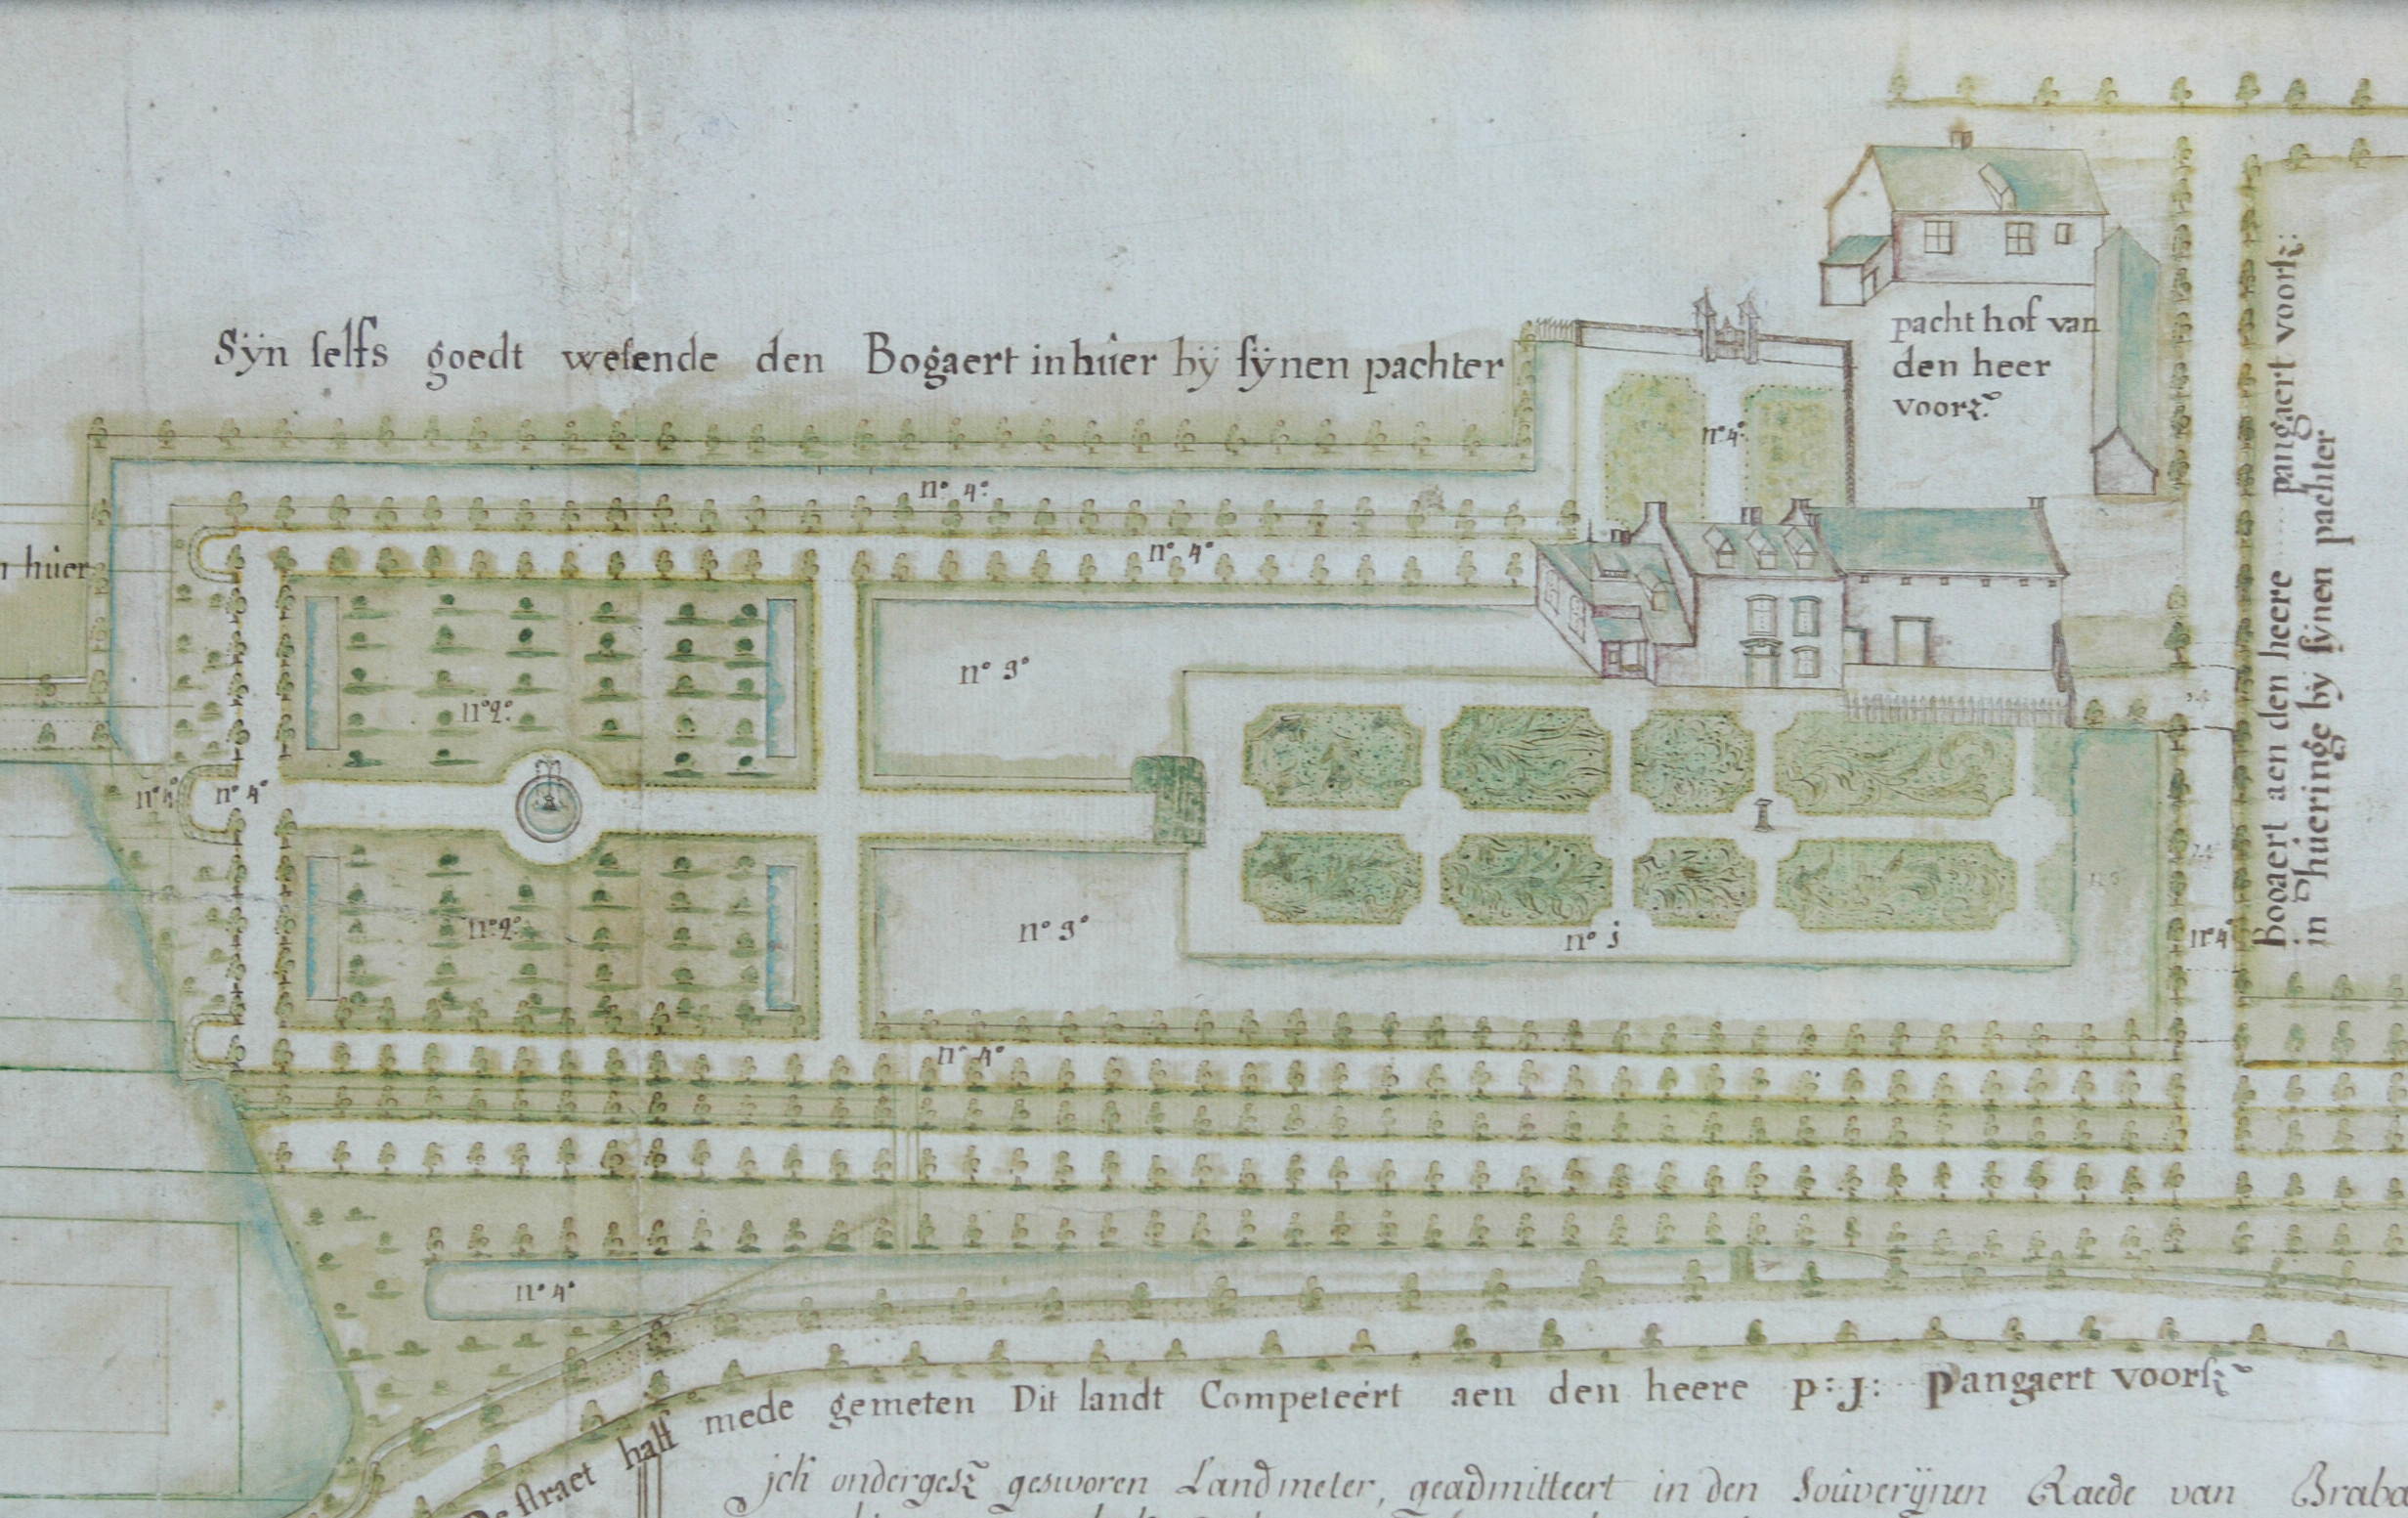 Sÿn selfs goedt wesende den Bogaert in hûer bÿ sÿnen pachter
pacht hof van
den heer
voorz˜
n° 4°
n° 4°
n° 4°
n hûer
n° 3°
n° 2°
n° 4°
n° 4°
n° 2°
n° 3°
n° j
n° 4°
n° 4°
n° 4°
Bogaert aen den heere pangaert voorsz:
in hueringe by sÿnen pachter
De straet half mede gemeten Dit landt Competeert aen den heere P: J: Pangaert voorsz˜
jck ondergesz˜ gesworen Landmeter, geadmitteert in den Soûverÿnen Raede van Braba